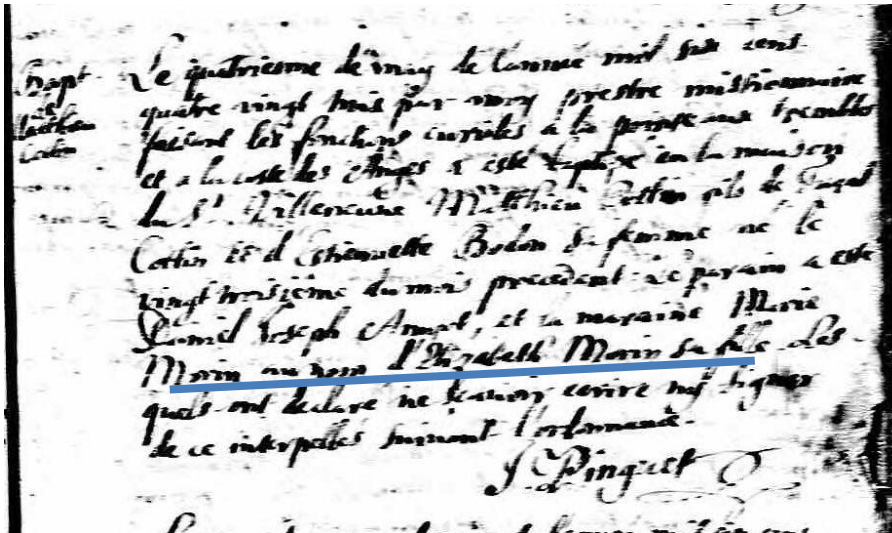 Bapt
de
Matthieu
Cottin
Le quatriesme de may de l'année mil six cens
quatre vingt trois par moy prestre missionnaire
faisant les fonctions curiales a la pointe aux trembles
et a la coste des Anges a esté baptisé en la maison
du Sr. Villeneuve Matthieu Cottin fils de
Cottin et d'Estiennette Bodon sa femme né le
vingt troisième du mois precedent. Le parain a esté
Daniel Joseph Amiot, et la maraine Marie
Morin au nom d'Elizabeth Morin sa fille. Les
quels ont declaré ne scavoir ecrire ny signer
de ce interpellés suivant l'ordonnance.
J. Pinguet